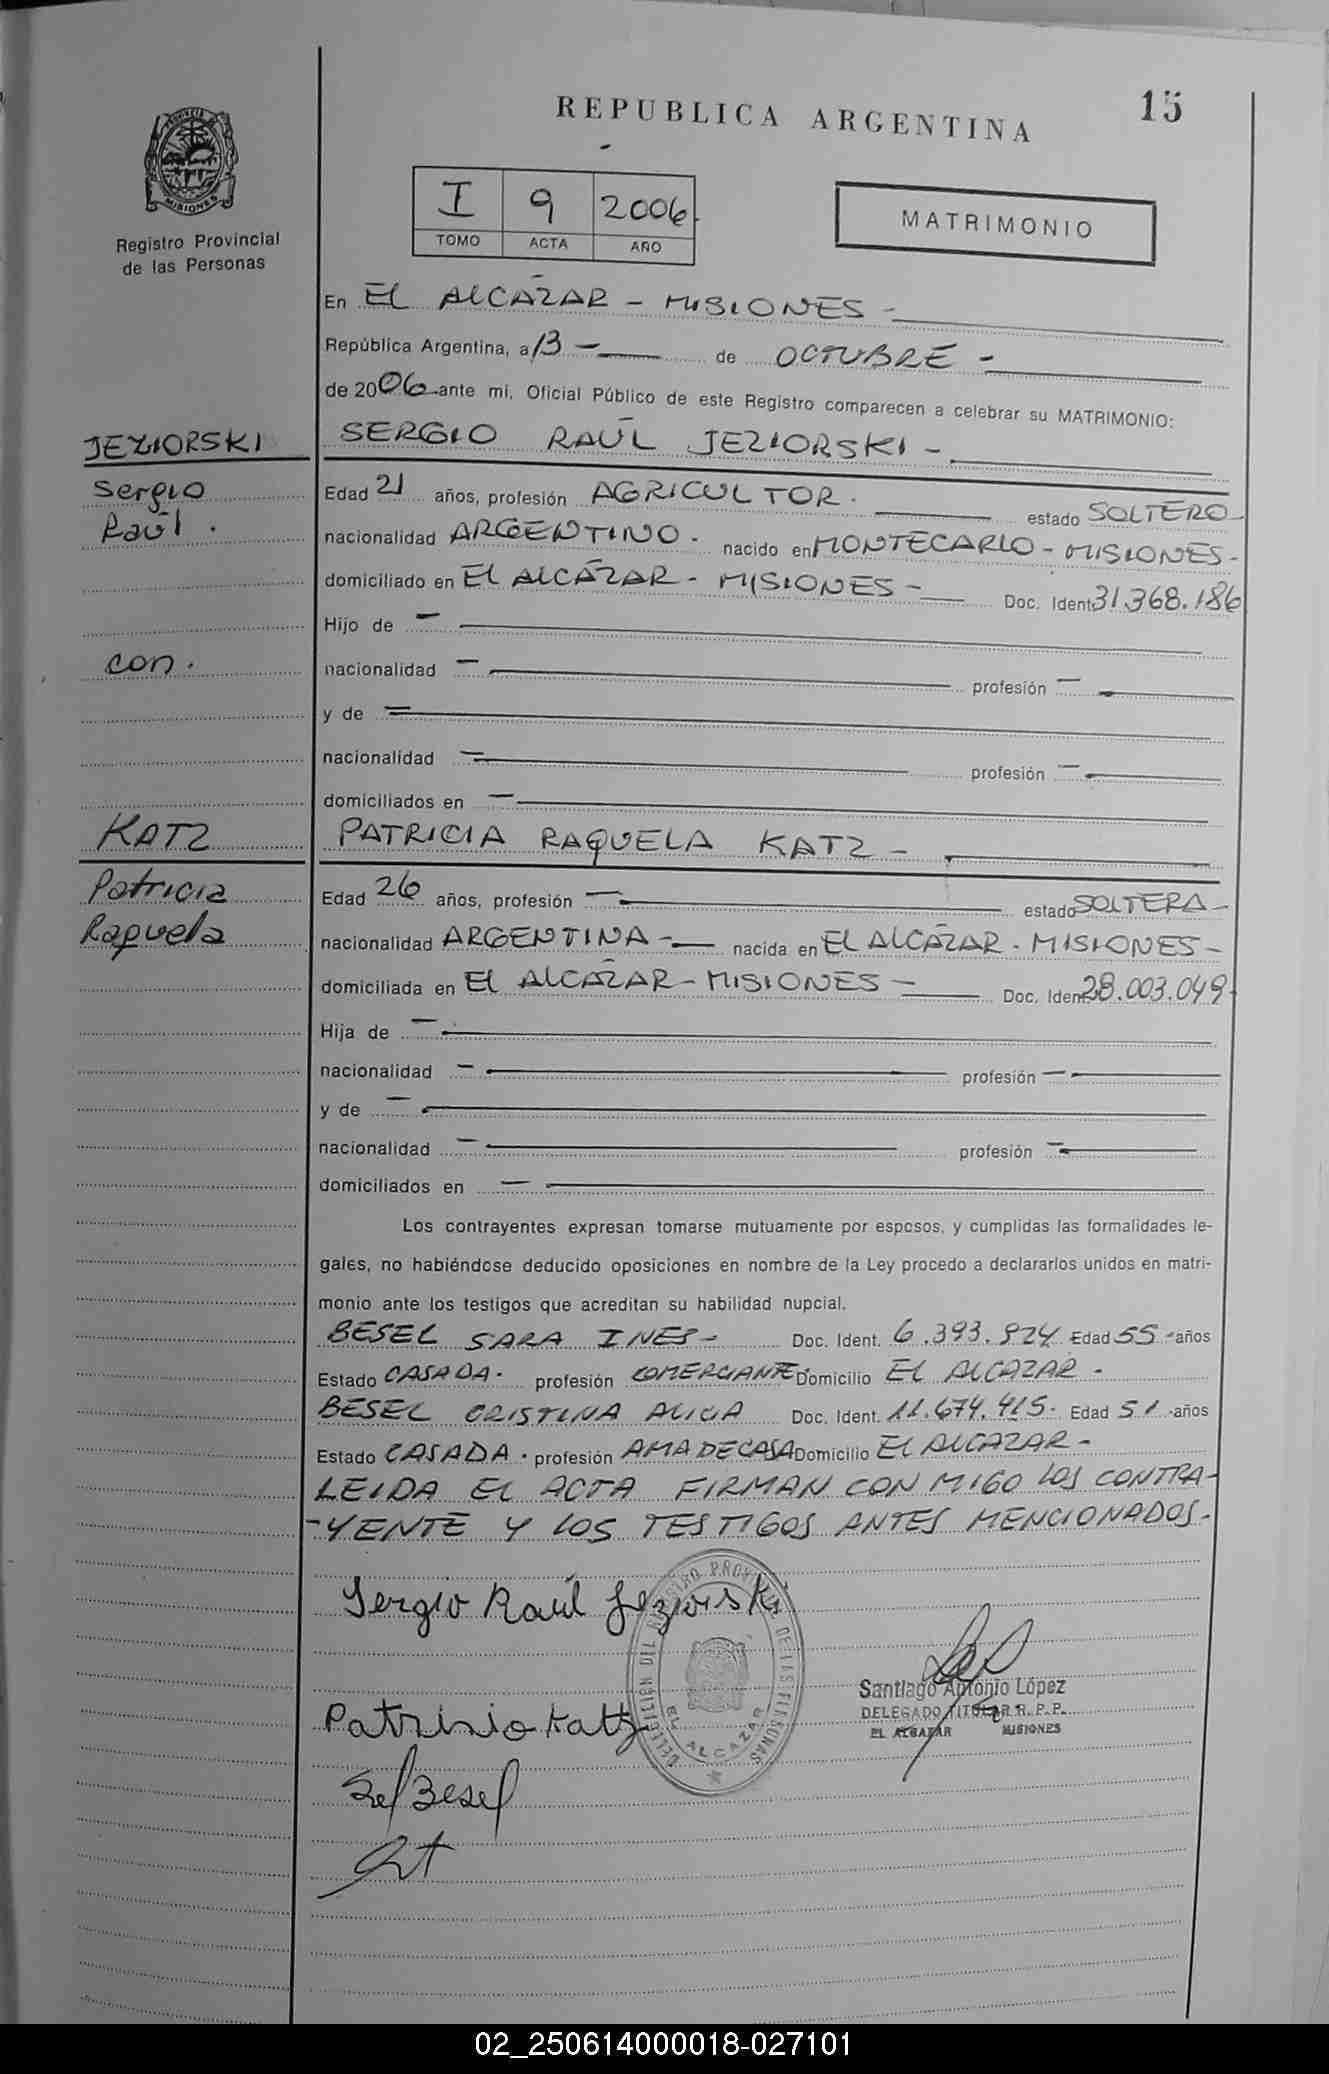 REPUBLICA ARGENTINA
15
PROVINCIA DE
MISIONES
Registro Provincial
de las Personas
I 9 2006.
TOMO ACTA AÑO
MATRIMONIO
En EL ALCÁZAR - MISIONES -
República Argentina, a 13 - de OCTUBRE -
de 2006 ante mi, Oficial Público de este Registro comparecen a celebrar su MATRIMONIO:
JEZIORSKI
SERGIO RAÚL JEZIORSKI -
Sergio
Edad 21 años, profesión AGRICULTOR. estado SOLTERO-
Raúl.
nacionalidad ARGENTINO. nacido en MONTECARLO - MISIONES-
domiciliado en EL ALCÁZAR - MISIONES - Doc. Ident. 31.368.186
Hijo de -
con.
nacionalidad - profesión -
y de -
nacionalidad - profesión -
domiciliados en -
KATZ
PATRICIA RAQUELA KATZ -
Patricia
Edad 26 años, profesión - estado SOLTERA-
Raquela
nacionalidad ARGENTINA - nacida en EL ALCÁZAR - MISIONES-
domiciliada en EL ALCÁZAR - MISIONES - Doc. Ident. 28.003.049-
Hija de -
nacionalidad - profesión -
y de -
nacionalidad - profesión -
domiciliados en -
Los contrayentes expresan tomarse mutuamente por esposos, y cumplidas las formalidades le-
gales, no habiéndose deducido oposiciones en nombre de la Ley procedo a declararlos unidos en matri-
monio ante los testigos que acreditan su habilidad nupcial.
BESEL SARA INES- Doc. Ident. 6.393.924 Edad 55 - años
Estado CASADA. profesión COMERCIANTE Domicilio EL ALCAZAR -
BESEL CRISTINA ALICIA Doc. Ident. 11.674.415. Edad 51 años
Estado CASADA. profesión AMA DE CASA Domicilio EL ALCAZAR -
LEIDA EL ACTA FIRMAN CON MIGO LOS CONTRA-
-YENTE Y LOS TESTIGOS ANTES MENCIONADOS-
Sergio Raúl Jeziorski
DELEGACIÓN DEL REGISTRO PROV. DE LAS PERSONAS
EL ALCAZAR
Santiago Antonio López
DELEGADO TITULAR R. P. P.
EL ALCAZAR MISIONES
Patricia Katz
Besel
02_250614000018-027101